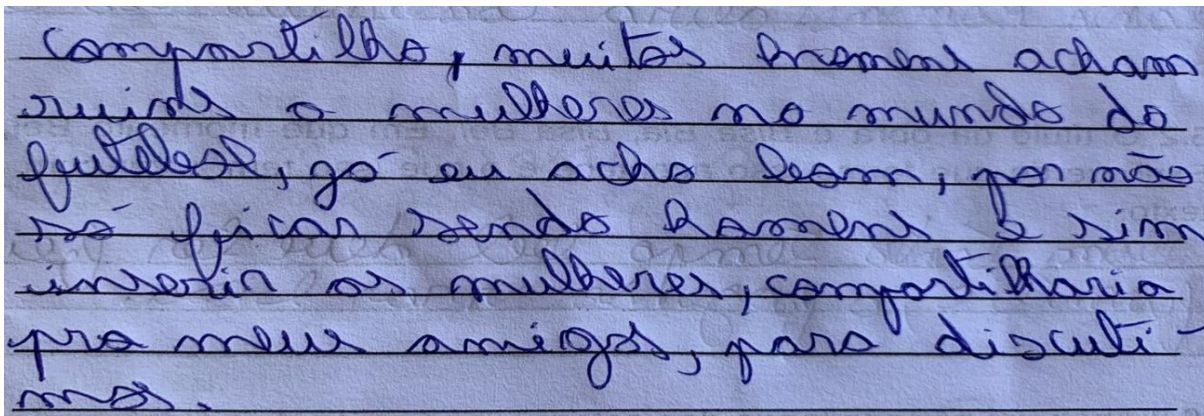 compartilho, muitos homens acham
ruims a mulheres no mundo do
futebol, já eu acho bom, por não
só ficar sendo homens e sim
inserir as mulheres, compartilharia
pra meus amigos, para discuti-
mos.